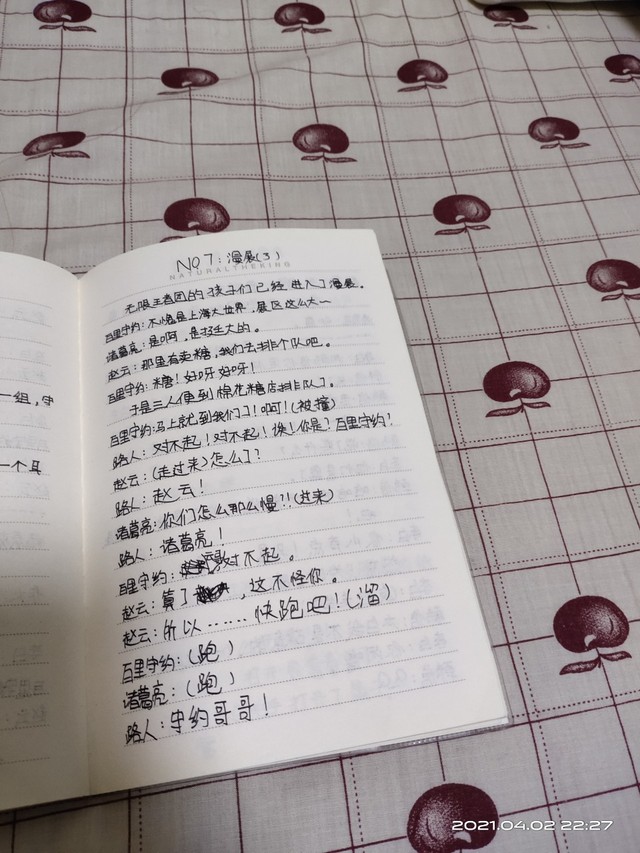 一组，守
一个耳
NO7：漫展(3)
NATURALTHEKING
无限王者团的孩子们已经进入了漫展。
百里守约：不愧是上海大世界，展区这么大~
诸葛亮：是啊，是挺大的。
赵云：那里有卖糖，我们去排个队吧。
百里守约：糖！好呀好呀！
于是三人便到棉花糖店排队了。
百里守约：马上就到我们了！啊！(被撞)
路人：对不起！对不起！咦！你是？百里守约！
赵云：(走过来)怎么了？
路人：赵云！
诸葛亮：你们怎么那么慢？！(过来)
路人：诸葛亮！
百里守约：对不起。
赵云：算了，这不怪你。
赵云：所以……快跑吧！(溜)
百里守约：(跑)
诸葛亮：(跑)
路人：守约哥哥！
2021.04.02 22:27